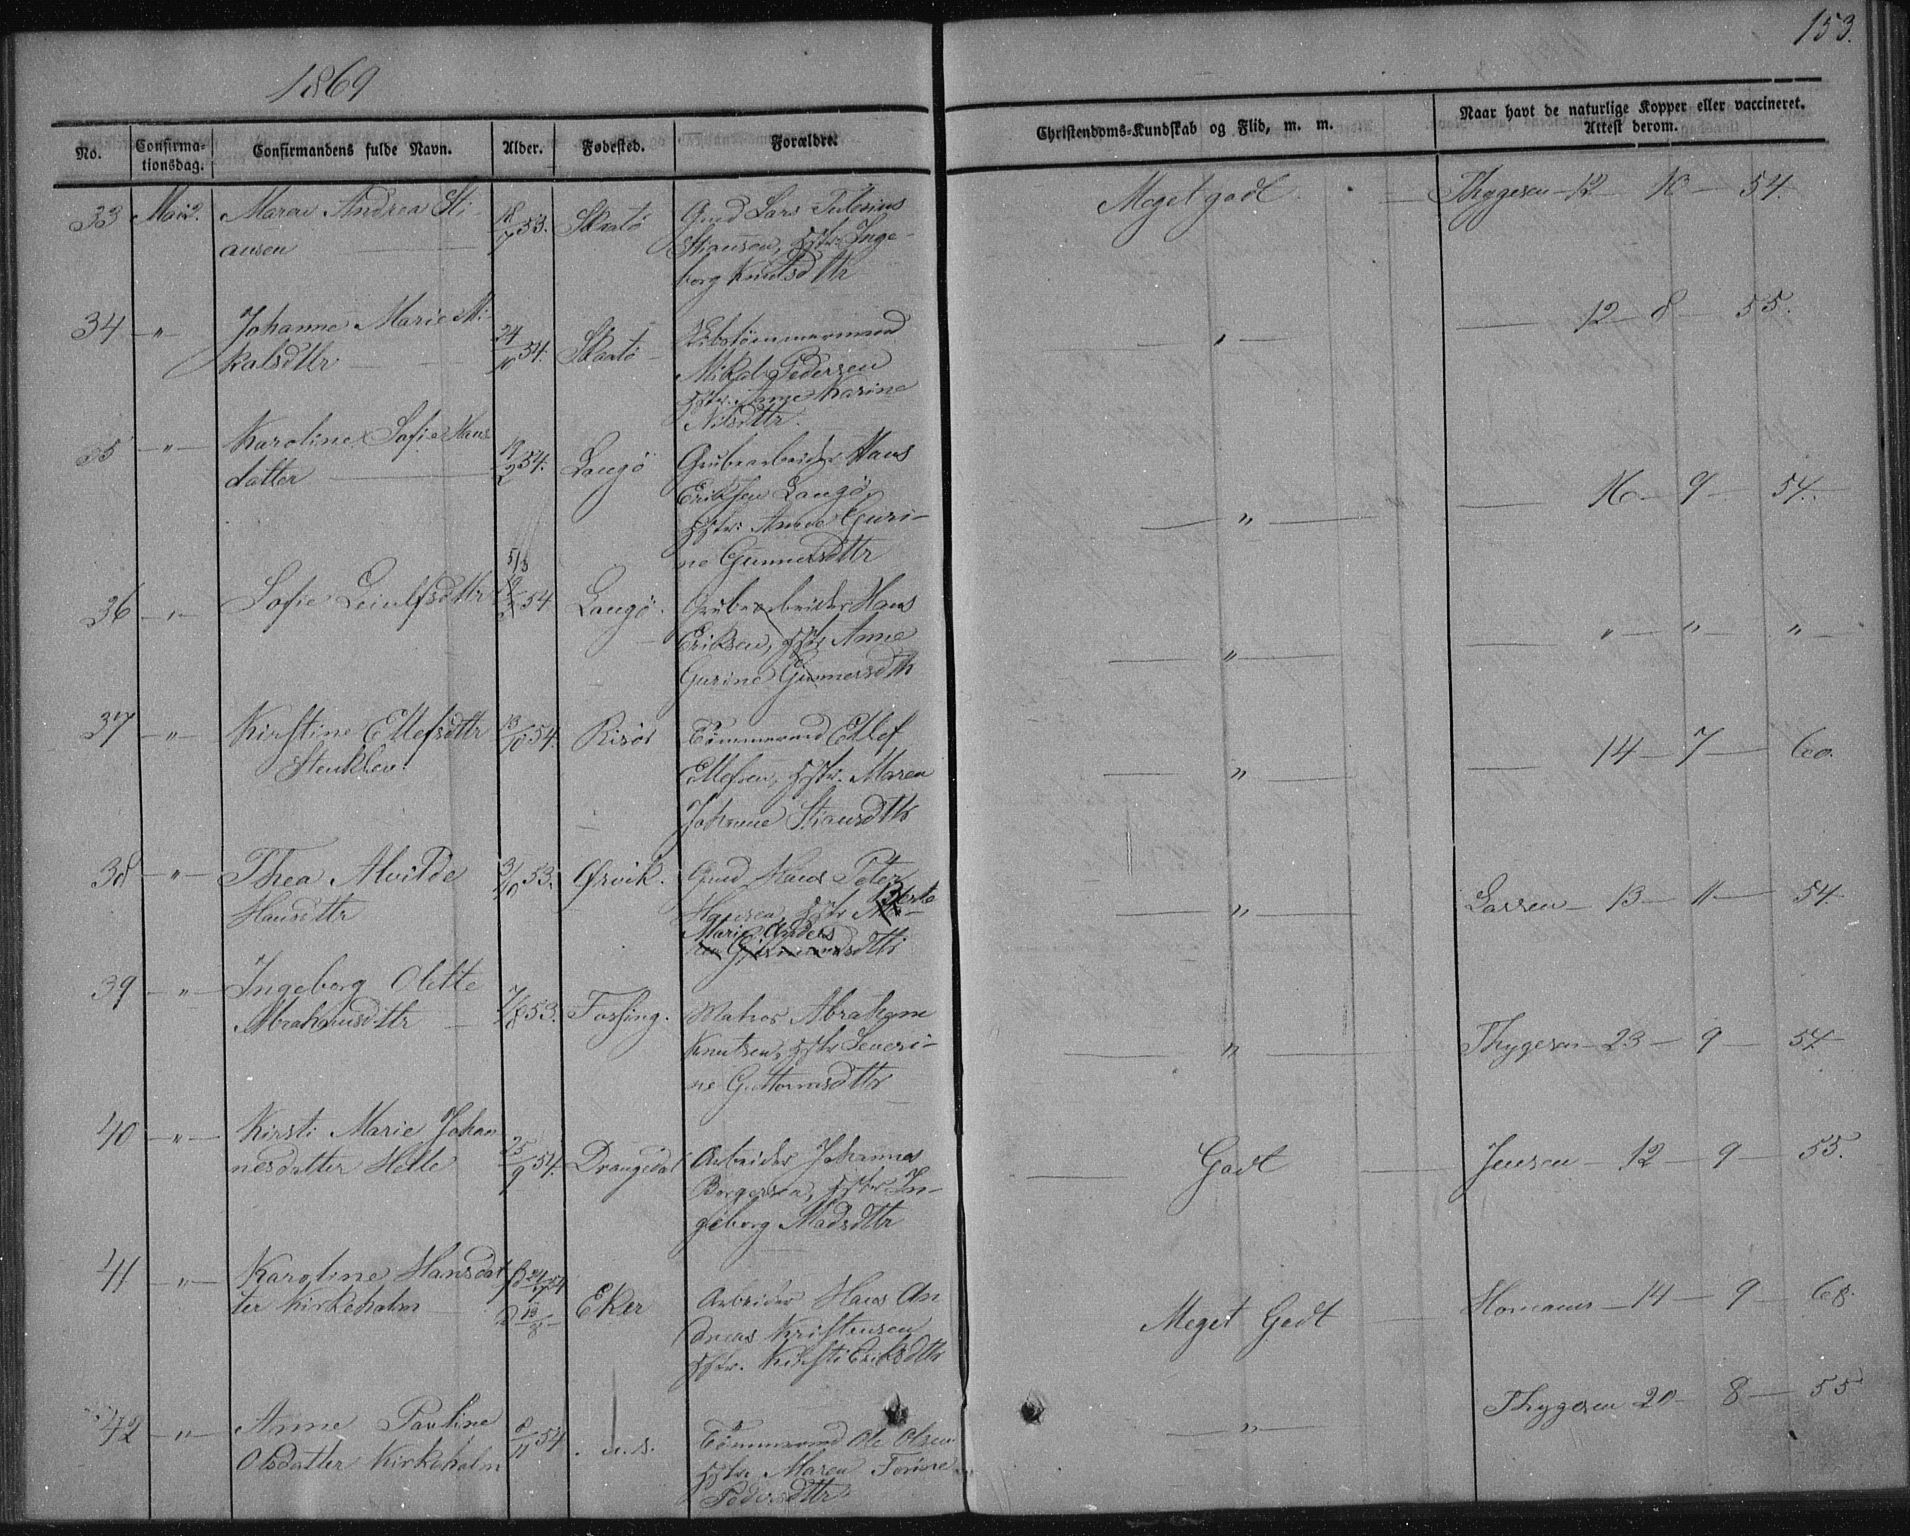 153.
1869
No.
Confirma-
tionsdag.
Confirmandens fulde Navn.
Alder.
Fødested.
Forældre.
Christendoms-Kundskab og Flid, m. m.
Naar havt de naturlige Kopper eller vaccineret.
Attest derom.
33 Mai 2. Maren Andrea Sti-
ansen
18/7 53. Skaatø
Gmd Lars Julius
Stiansen, Hstr Inge-
borg Knutsdttr
Meget godt
Thygesen 12 10 54.
34 " Johanne Marie Mi-
kalsdttr
24/10 54. Skaatø
Skibstømmermand
Mikal Pedersen
Hstr. Anne Karine
Nilsdttr.
"
12 8 55.
35 " Karoline Sofie Hans
datter
54. Langø
Grubearbeider Hans
Eriksen Langø,
Hstr: Anne Guri-
ne Gunnersdttr
"
16 9 54.
36 " Sofie Leiulfsdttr
54 Langø.
Grubearbeider Hans
Eriksen, Hstr Anne
Gurine Gunnersdttr
"
" " "
37 " Kirstine Ellefsdttr
Stenklev.
13/10 54. Risør
Tømmermd Ellef
Ellefsen, Hstr. Maren
Johanne Stiansdttr
"
14 7 60.
38 " Thea Alvilde
Hansdttr
3/10 53. Ørvik.
Gmd Hans Peter
Hansen, Hstr
Marie Anders
dttr
"
Larsen 13 11 54
39 " Ingeborg Olette
Abrahamsdttr
7/8 53. Fossing.
Matros Abraham
Knutsen, Hstr Severi-
ne Guttormsdttr
"
Thygesen 23 9 54.
40 " Kirsti Marie Johan
nesdatter Helle
25/9 54. Drangedal
Arbeider Johannes
Borgersen, Hstr In-
geborg Madsdttr
Godt
Jensen 12 9 55.
41 " Karoline Hansdat
ter Kirkeholm
54 Eker
Arbeider Hans An
dreas Kristensen
Hstr. Kirsti Eriksdttr
Meget Godt
Homann 14 9 68.
42 " Anne Pauline
Olsdatter Kirkeholm
8/11 54. . a. s.
Tømmermd Ole Olsen
Hstr Maren Torine
Pedersdttr
"
Thygesen 20 8 55